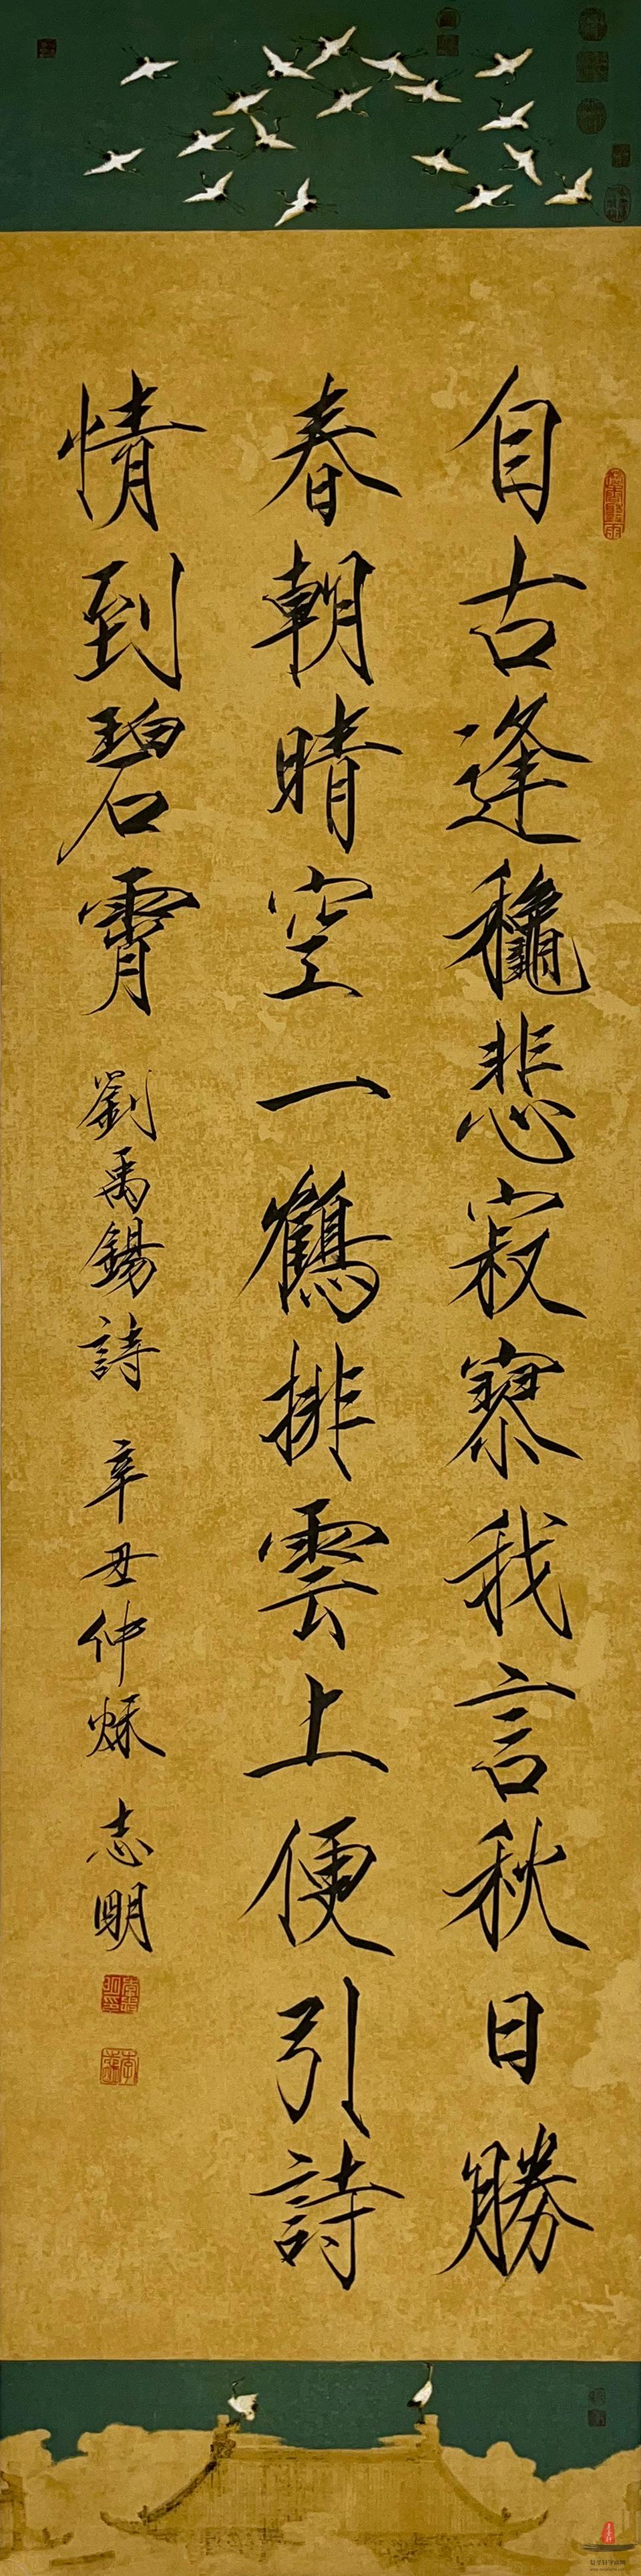 自古逢龝悲寂寥我言秋日勝
春朝晴空一鶴排雲上便引詩
情到碧霄 劉禹錫詩 辛丑仲秌 志明